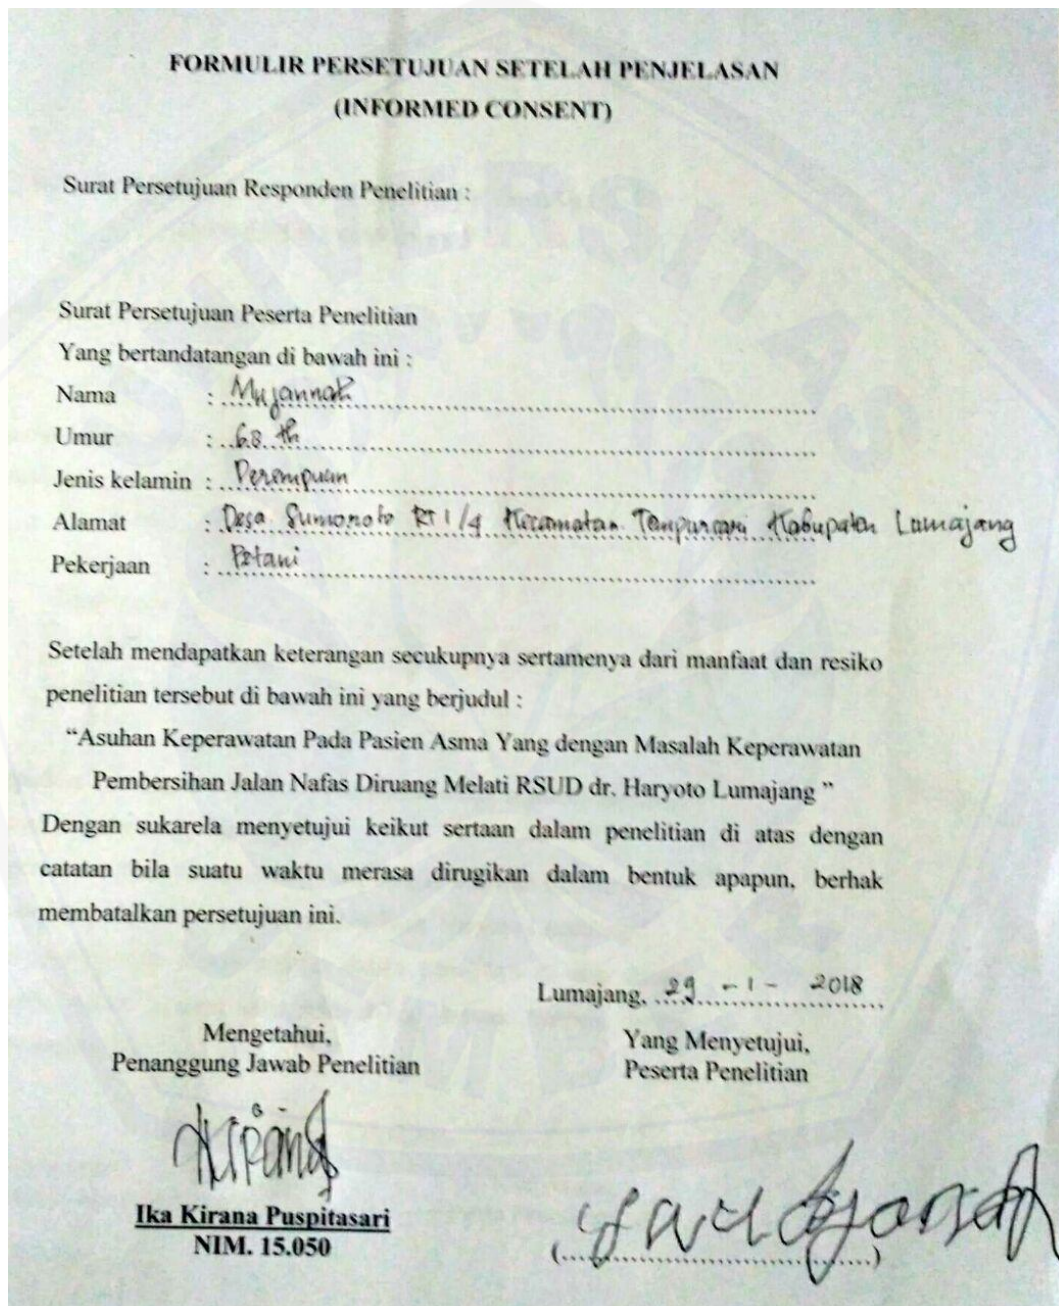 FORMULIR PERSETUJUAN SETELAH PENJELASAN
(INFORMED CONSENT)
Surat Persetujuan Responden Penelitian :
Surat Persetujuan Peserta Penelitian
Yang bertandatangan di bawah ini :
Nama : Mujannah
Umur : 68 th
Jenis kelamin : Perempuan
Alamat : Desa RT 1/4 Kecamatan Kabupaten Lumajang
Pekerjaan : Petani
Setelah mendapatkan keterangan secukupnya sertamenya dari manfaat dan resiko
penelitian tersebut di bawah ini yang berjudul :
“Asuhan Keperawatan Pada Pasien Asma Yang dengan Masalah Keperawatan
Pembersihan Jalan Nafas Diruang Melati RSUD dr. Haryoto Lumajang ”
Dengan sukarela menyetujui keikut sertaan dalam penelitian di atas dengan
catatan bila suatu waktu merasa dirugikan dalam bentuk apapun, berhak
membatalkan persetujuan ini.
Lumajang, 29 - 1 - 2018
Mengetahui,
Penanggung Jawab Penelitian
Yang Menyetujui,
Peserta Penelitian
Ika Kirana Puspitasari
NIM. 15.050